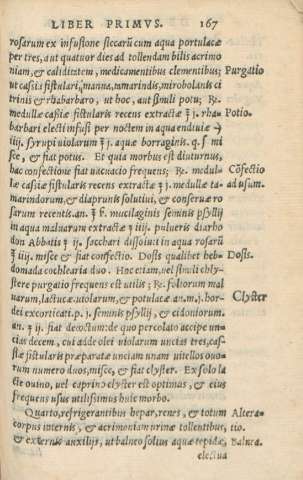 LIBER PRIMVS. 167
rosarum ex infusione siccarũ cum aqua portulacæ
per tres, aut quatuor dies ad tollendam bilis acrimo
niam, & caliditatem, medicamentibus clementibus; Purgatio
ut casiæ fistulari, manna, tamarindis, mirobolanis ci
trinis & rhabarbaro, ut hoc, aut simili potu; ℞.
medullæ cassiæ fistularis recens extractæ ℥ j. rha- Potio.
barbari electi infusi per noctem in aqua endiuiæ
iiij. syrupi uiolarum ℥ j. aquæ borraginis. q. s mi
sce, & fiat potus. Et quia morbus est diuturnus,
hac confectione fiat euacuatio frequens; ℞. medul- Cõfectio
læ casiæ fistularis recens extractæ ℥ j. medullæ ta- ad usum.
marindorum, & diaprunis solutiui, & conseruæ ro
sarum recentis. an. ℥ ß. mucilaginis seminis psyllij
in aqua maluarum extractæ ʒ iij. pulueris diarho
don Abbatis ʒ ij. sacchari dissoluti in aqua rosarũ
℥ iij. misce & fiat confectio. Dosis qualibet heb- Dosis.
domada cochlearia duo. Hac etiam, uel simili chly-
stere purgatio frequens est utilis; ℞. foliorum mal
uarum, lactucæ, uiolarum, & potulacæ an. m. j. hor- Clyster
dei excorticati. p. j. seminis psyllij, & cidoniorum.
an. ʒ ij. fiat decoctum: de quo percolato accipe un-
cias decem, cui adde olei uiolarum uncias tres, cas-
siæ fistularis præparatæ unciam unam uitellos ouo-
rum numero duos, misce, & fiat clyster. Ex solo la
cte ouino, uel caprino clyster est optimus, & eius
frequens usus utilissimus huic morbo.
Quarto, refrigerantibus hepar, renes, & totum Altera-
corpus internis, & acrimoniam urinæ tollentibus, tio.
& externis auxilijs, ut balneo solius aquæ tepidæ, Balnea.
electua